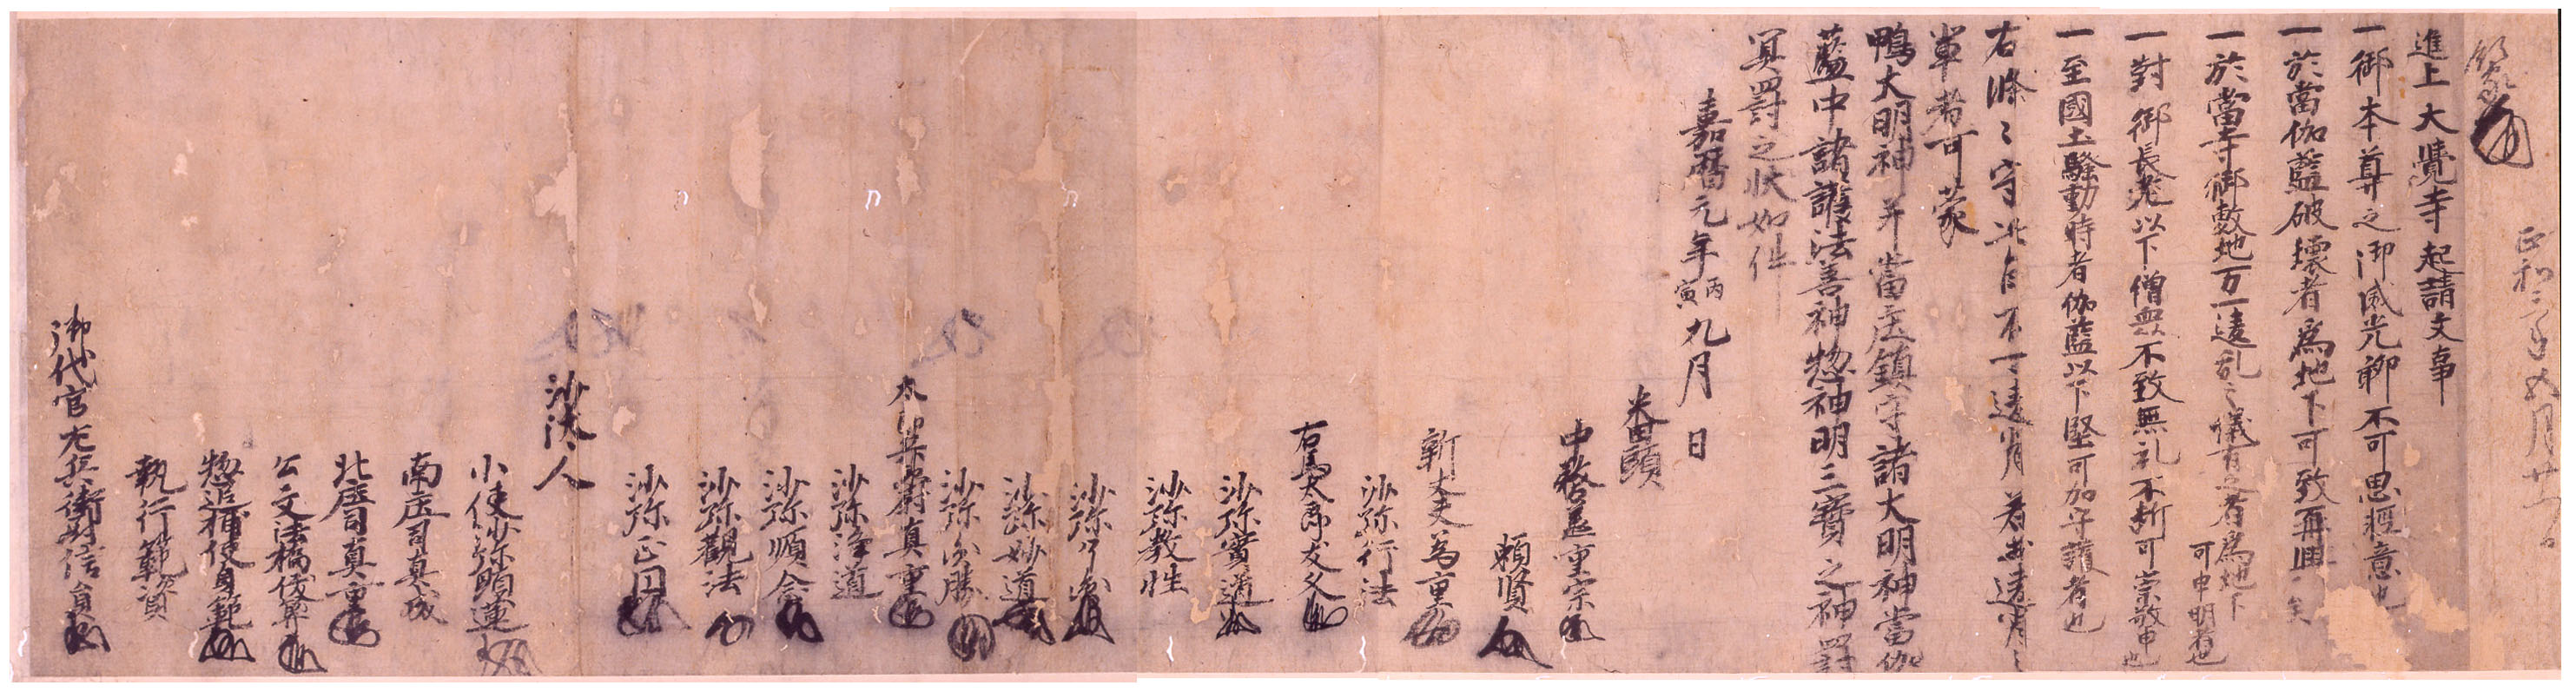 正和三年五月廿一日
進上 大覺寺 起請文事
一御本尊之御威光聊不可思輕意也
一於當伽藍破壞者爲地下可致再興
一於當寺御敷地万一違乱之儀有之者爲地下
可申明者也
一對 御長老以下僧衆不致無礼不断可崇敬申也
一至國土騒動時者伽藍以下堅可加守護者也
右條々守此旨不可違背若於違背之
輩者可蒙
鴨大明神并當庄鎮守諸大明神當伽
藍中諸護法善神惣神明三寶之神罸
冥罸之状如件
嘉暦元年丙寅九月 日
番頭
中務丞重宗
頼賢
新大夫為重
沙弥行法
右馬太郎友久
沙弥實道
沙弥教性
沙弥
沙弥妙道
沙弥 勝
右衛門尉真重
沙弥浄道
沙弥順念
沙弥觀法
沙弥正円
沙汰人
小使沙弥顕蓮
南庄司真成
北庄司真重
公文法橋俊算
惣追捕使貞範
執行範資
御代官左兵衛尉信貞